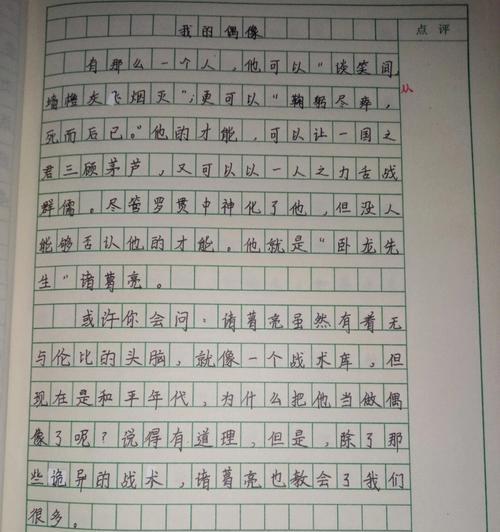 我的偶像
点评
有那么一个人,他可以“谈笑间,
墙橹灰飞烟灭”;更可以“鞠躬尽瘁,
死而后已。”他的才能,可以让一国之
君三顾茅芦,又可以以一人之力舌战
群儒。尽管罗贯中神化了他,但没人
能够否认他的才能。他就是“卧龙先
生”诸葛亮。
或许你会问:诸葛亮虽然有着无
与伦比的头脑,就像一个战术库,但
现在是和平年代,为什么把他当做偶
像了呢?说得有道理,但是,除了那
些诡异的战术,诸葛亮也教会了我们
很多。